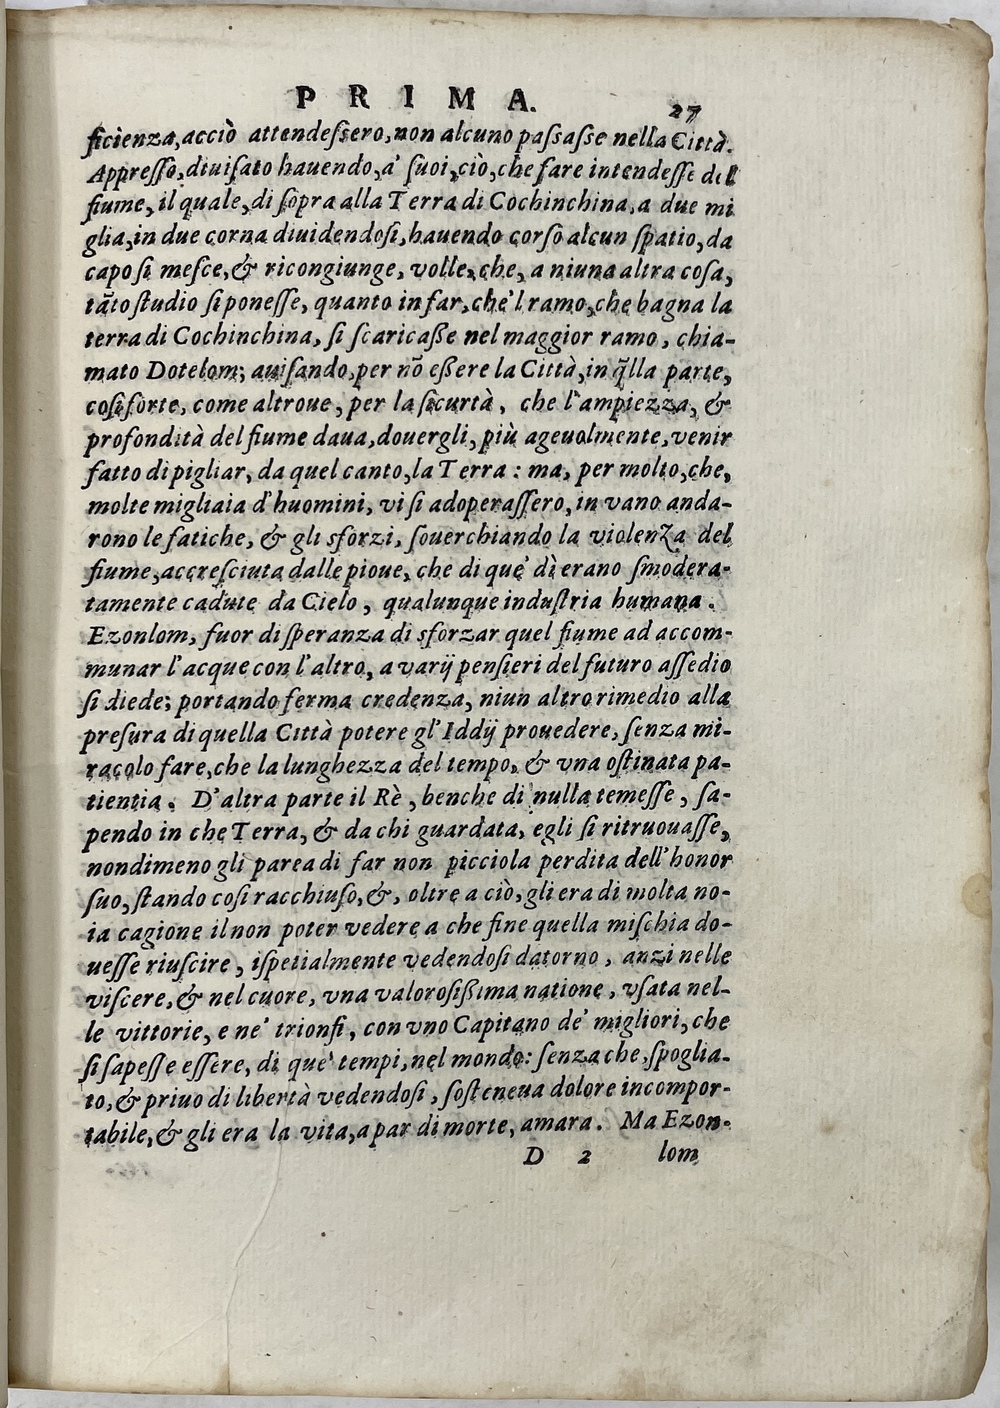 PRIMA. 27
ficienza, acciò attendeſsero, non alcuno paſsaſse nella Città.
Appreſſo, diuiſato hauendo, a' ſuoi, ciò, che fare intendeſſe del
fiume, il quale, di ſopra alla Terra di Cochinchina, a due mi
glia, in due corna diuidendoſi, hauendo corſo alcun ſpatio, da
capo ſi meſce, & ricongiunge, volle, che, a niuna altra coſa,
tāto ſtudio ſi poneſſe, quanto in far, che'l ramo, che bagna la
terra di Cochinchina, ſi ſcaricaße nel maggior ramo, chia-
mato Dotelom; auiſando, per nō eßere la Città, in q̃lla parte,
coſi forte, come altroue, per la ſicurtà, che l'ampiezza, &
profondità del fiume daua, douergli, più ageuolmente, venir
fatto di pigliar, da quel canto, la Terra: ma, per molto, che,
molte migliaia d'huomini, vi ſi adoperaſſero, in vano anda-
rono le fatiche, & gli sforzi, ſouerchiando la violenza del
fiume, accreſciuta dalle pioue, che di que' dì erano ſmodera-
tamente cadute da Cielo, qualunque induſtria humana.
Ezonlom, fuor di ſperanza di sforzar quel fiume ad accom-
munar l'acque con l'altro, a varij penſieri del futuro aſſedio
ſi diede; portando ferma credenza, niun altro rimedio alla
preſura di quella Città potere gl'Iddij prouedere, ſenza mi-
racolo fare, che la lunghezza del tempo, & vna oſtinata pa-
tientia. D'altra parte il Rè, benche di nulla temeſſe, ſa-
pendo in che Terra, & da chi guardata, egli ſi ritruouaſſe,
nondimeno gli parea di far non picciola perdita dell'honor
ſuo, ſtando coſi racchiuſo, &, oltre a ciò, gli era di molta no-
ia cagione il non poter vedere a che fine quella miſchia do-
ueſſe riuſcire, iſpetialmente vedendoſi datorno, anzi nelle
viſcere, & nel cuore, vna valoroſißima natione, vſata nel-
le vittorie, e ne' trionfi, con vno Capitano de' migliori, che
ſi ſapeſſe eſſere, di que' tempi, nel mondo: ſenza che, ſpoglia-
to, & priuo di libertà vedendoſi, ſoſteneua dolore incompor-
tabile, & gli era la vita, a par di morte, amara. Ma Ezon-
D 2 lom